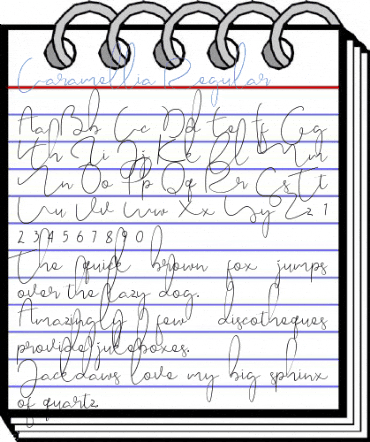 Caramellia Regular
Aa Bb Cc Dd Ee Ff Gg
Hh Ii Jj Kk Ll Mm
Nn Oo Pp Qq Rr Ss Tt
Uu Vv Ww Xx Yy Zz 1
2 3 4 5 6 7 8 9 0
The quick brown fox jumps
over the lazy dog.
Amazingly few discotheques
provide jukeboxes.
Jackdaws love my big sphinx
of quartz